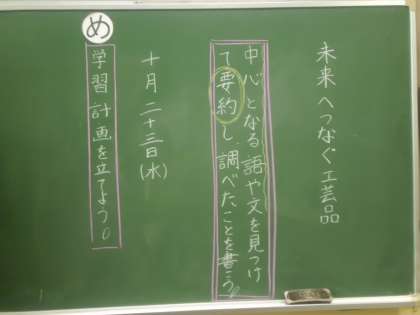 未来へつなぐ工芸品
中心となる語や文を見つけ
て要約し、調べたことを書こう。
十月二十三日(水)
め
学習計画を立てよう。